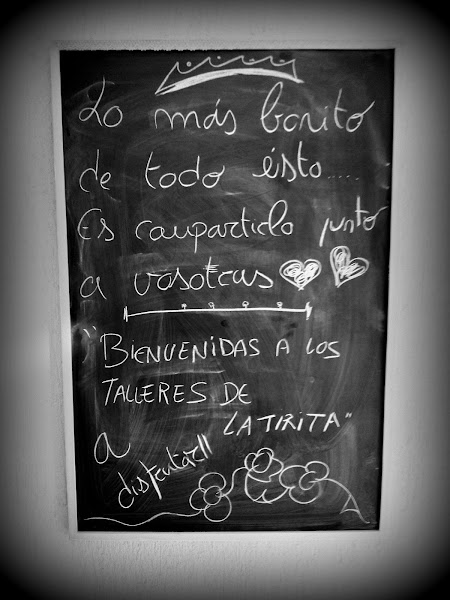 Lo más bonito
de todo ésto.....
Es compartirlo junto
a vosotras
"BIENVENIDAS A LOS
TALLERES DE
LA TIRITA"
a
disfrutar!!